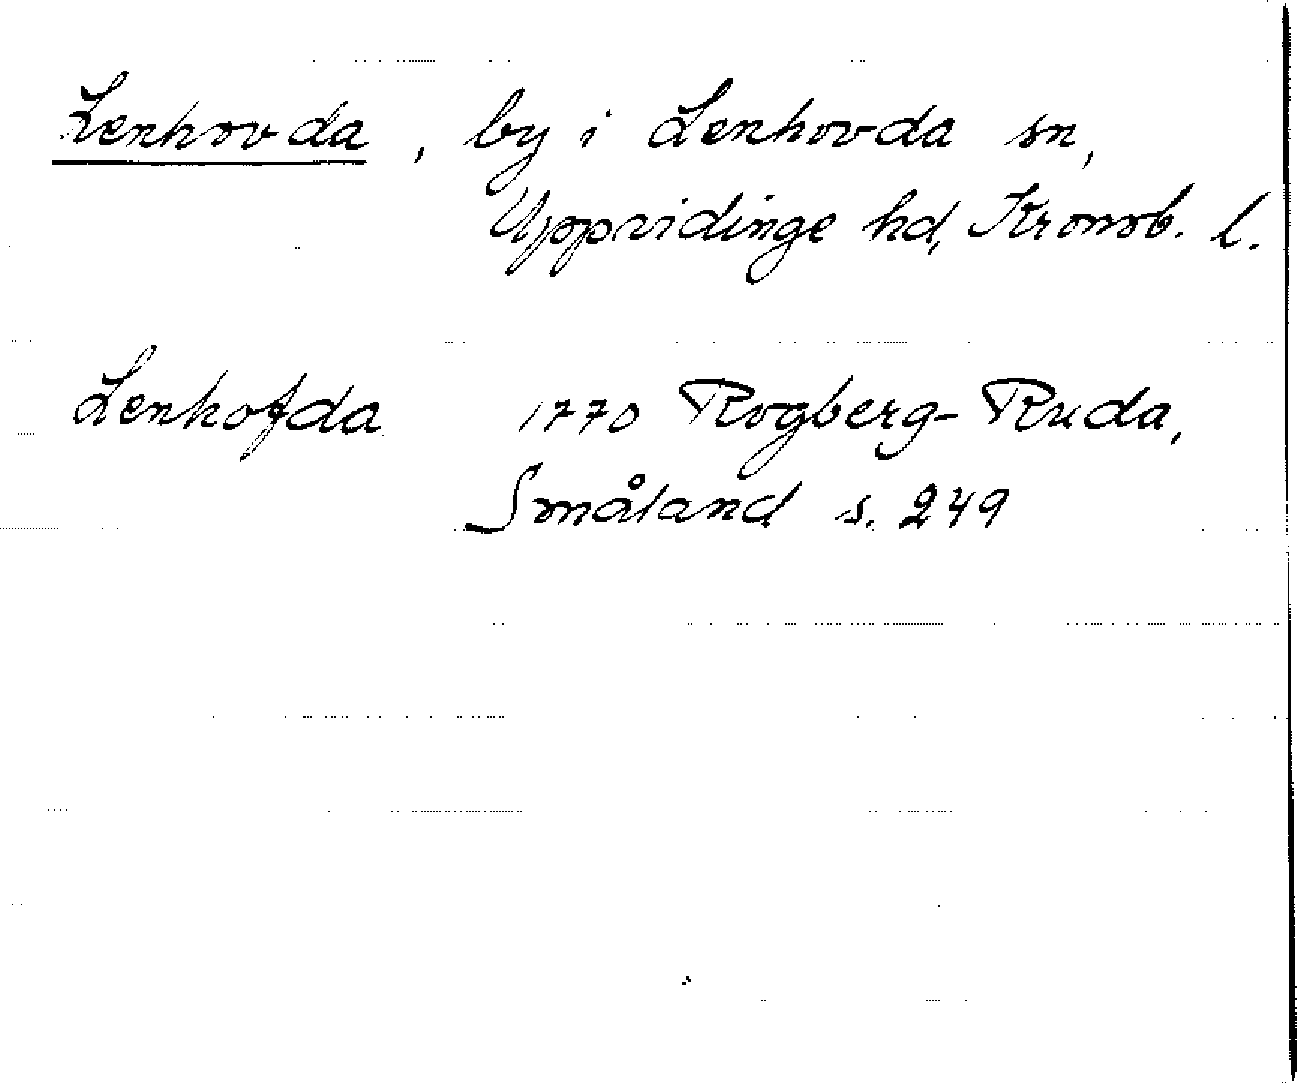 Lenhovda, by i Lenhovda sn,
Uppvidinge hd, Kronob. l.
Lenhofda 1770 Rogberg-Ruda,
Småland s. 249